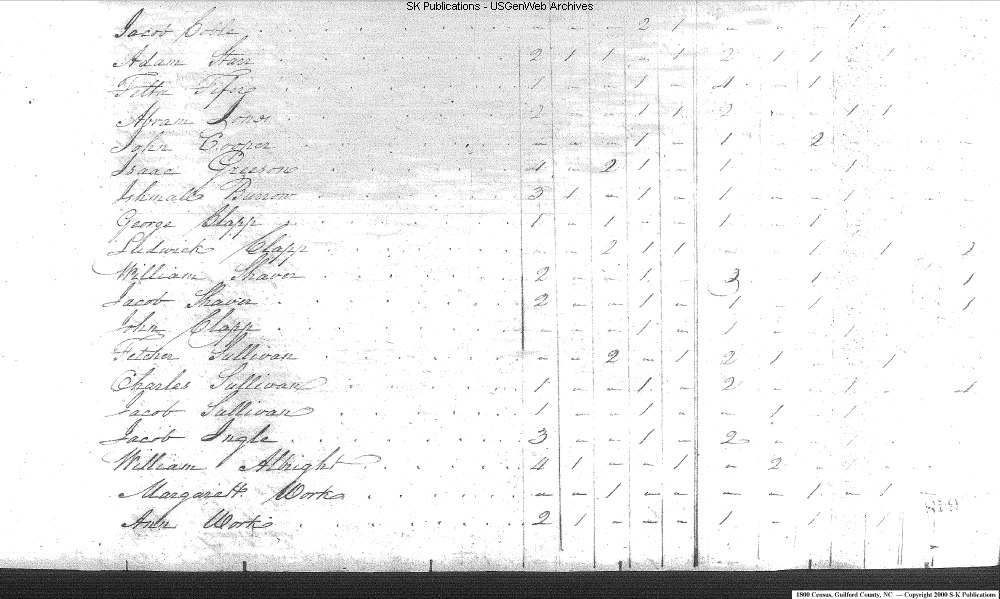 SK Publications - USGenWeb Archives
Jacob Coble - - - 2 1 - - - 1
Adam Starr 2 1 1 - 1 2 1 1 - 1
1 - - 1 - 1 - 1
Abram 2 - - 1 1 2 - - 1 1
John Cooper - - - 1 - 1 - 2
Isaac Greeson 4 - 2 1 - 1 - - 1
Ishmall Burrow 3 1 - 1 - 1 - - 1
George Clapp 1 - 1 - - 1 - 1
Ludwick Clapp - - 2 1 1 - - 1 - 1 2
William Shaver 2 - - 1 - 3 - 1 1
Jacob Shaver 2 - - 1 - 1 - 1 1
John Clapp - - - 1 - 1 -
Fetcher Sullivan - - 2 - 1 2 1 - - 1
Charles Sullivan 1 - - 1 - 2 - - 1 - 1
Jacob Sullivan 1 - - 1 - - 1 - 1
Jacob Ingle 3 - - 1 - 2
William Albright 4 1 - - 1 - 2 - 1
Margarett Work - - 1 - - - - 1 - 1
Ann Work 2 1 - - - 1 - 1 - 1
1800 Census, Guilford County, NC — Copyright 2000 S-K Publications